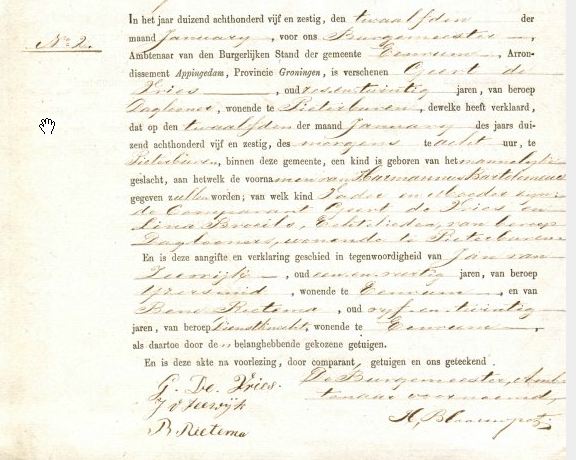 N° 2.
In het jaar duizend achthonderd vijf en zestig, den twaalfden der
maand Januarij, voor ons Burgemeester,
Ambtenaar van den Burgerlijken Stand der gemeente Eenrum, Arron-
dissement Appingedam, Provincie Groningen, is verschenen Geert de
Vries, oud zes en twintig jaren, van beroep
Daglooner, wonende te Pieterburen, dewelke heeft verklaard,
dat op den twaalfden der maand Januarij des jaars dui-
zend achthonderd vijf en zestig, des morgens te acht uur, te
Pieterburen, binnen deze gemeente, een kind is geboren van het mannelijke
geslacht, aan hetwelk de voornamen van Harmannus Bartelomeus
gegeven zullen worden; van welk kind Vader en Moeder zijn
de Comparant Geert de Vries en
Broeils, Echtelieden, van beroep
Daglooners, wonende te Pieterburen
En is deze aangifte en verklaring geschied in tegenwoordigheid van Jan van
Zeewijk, oud een en veertig jaren, van beroep
, wonende te Eenrum, en van
Rietema, oud vijf en twintig
jaren, van beroep Dienstknecht, wonende te Eenrum,
als daartoe door de n belanghebbende gekozene getuigen.
En is deze akte na voorlezing, door comparant, getuigen en ons geteekend.
G. De Vries. De Burgemeester, Amb-
J v Zeewijk tenaar voornoemd,
B. Rietema H,